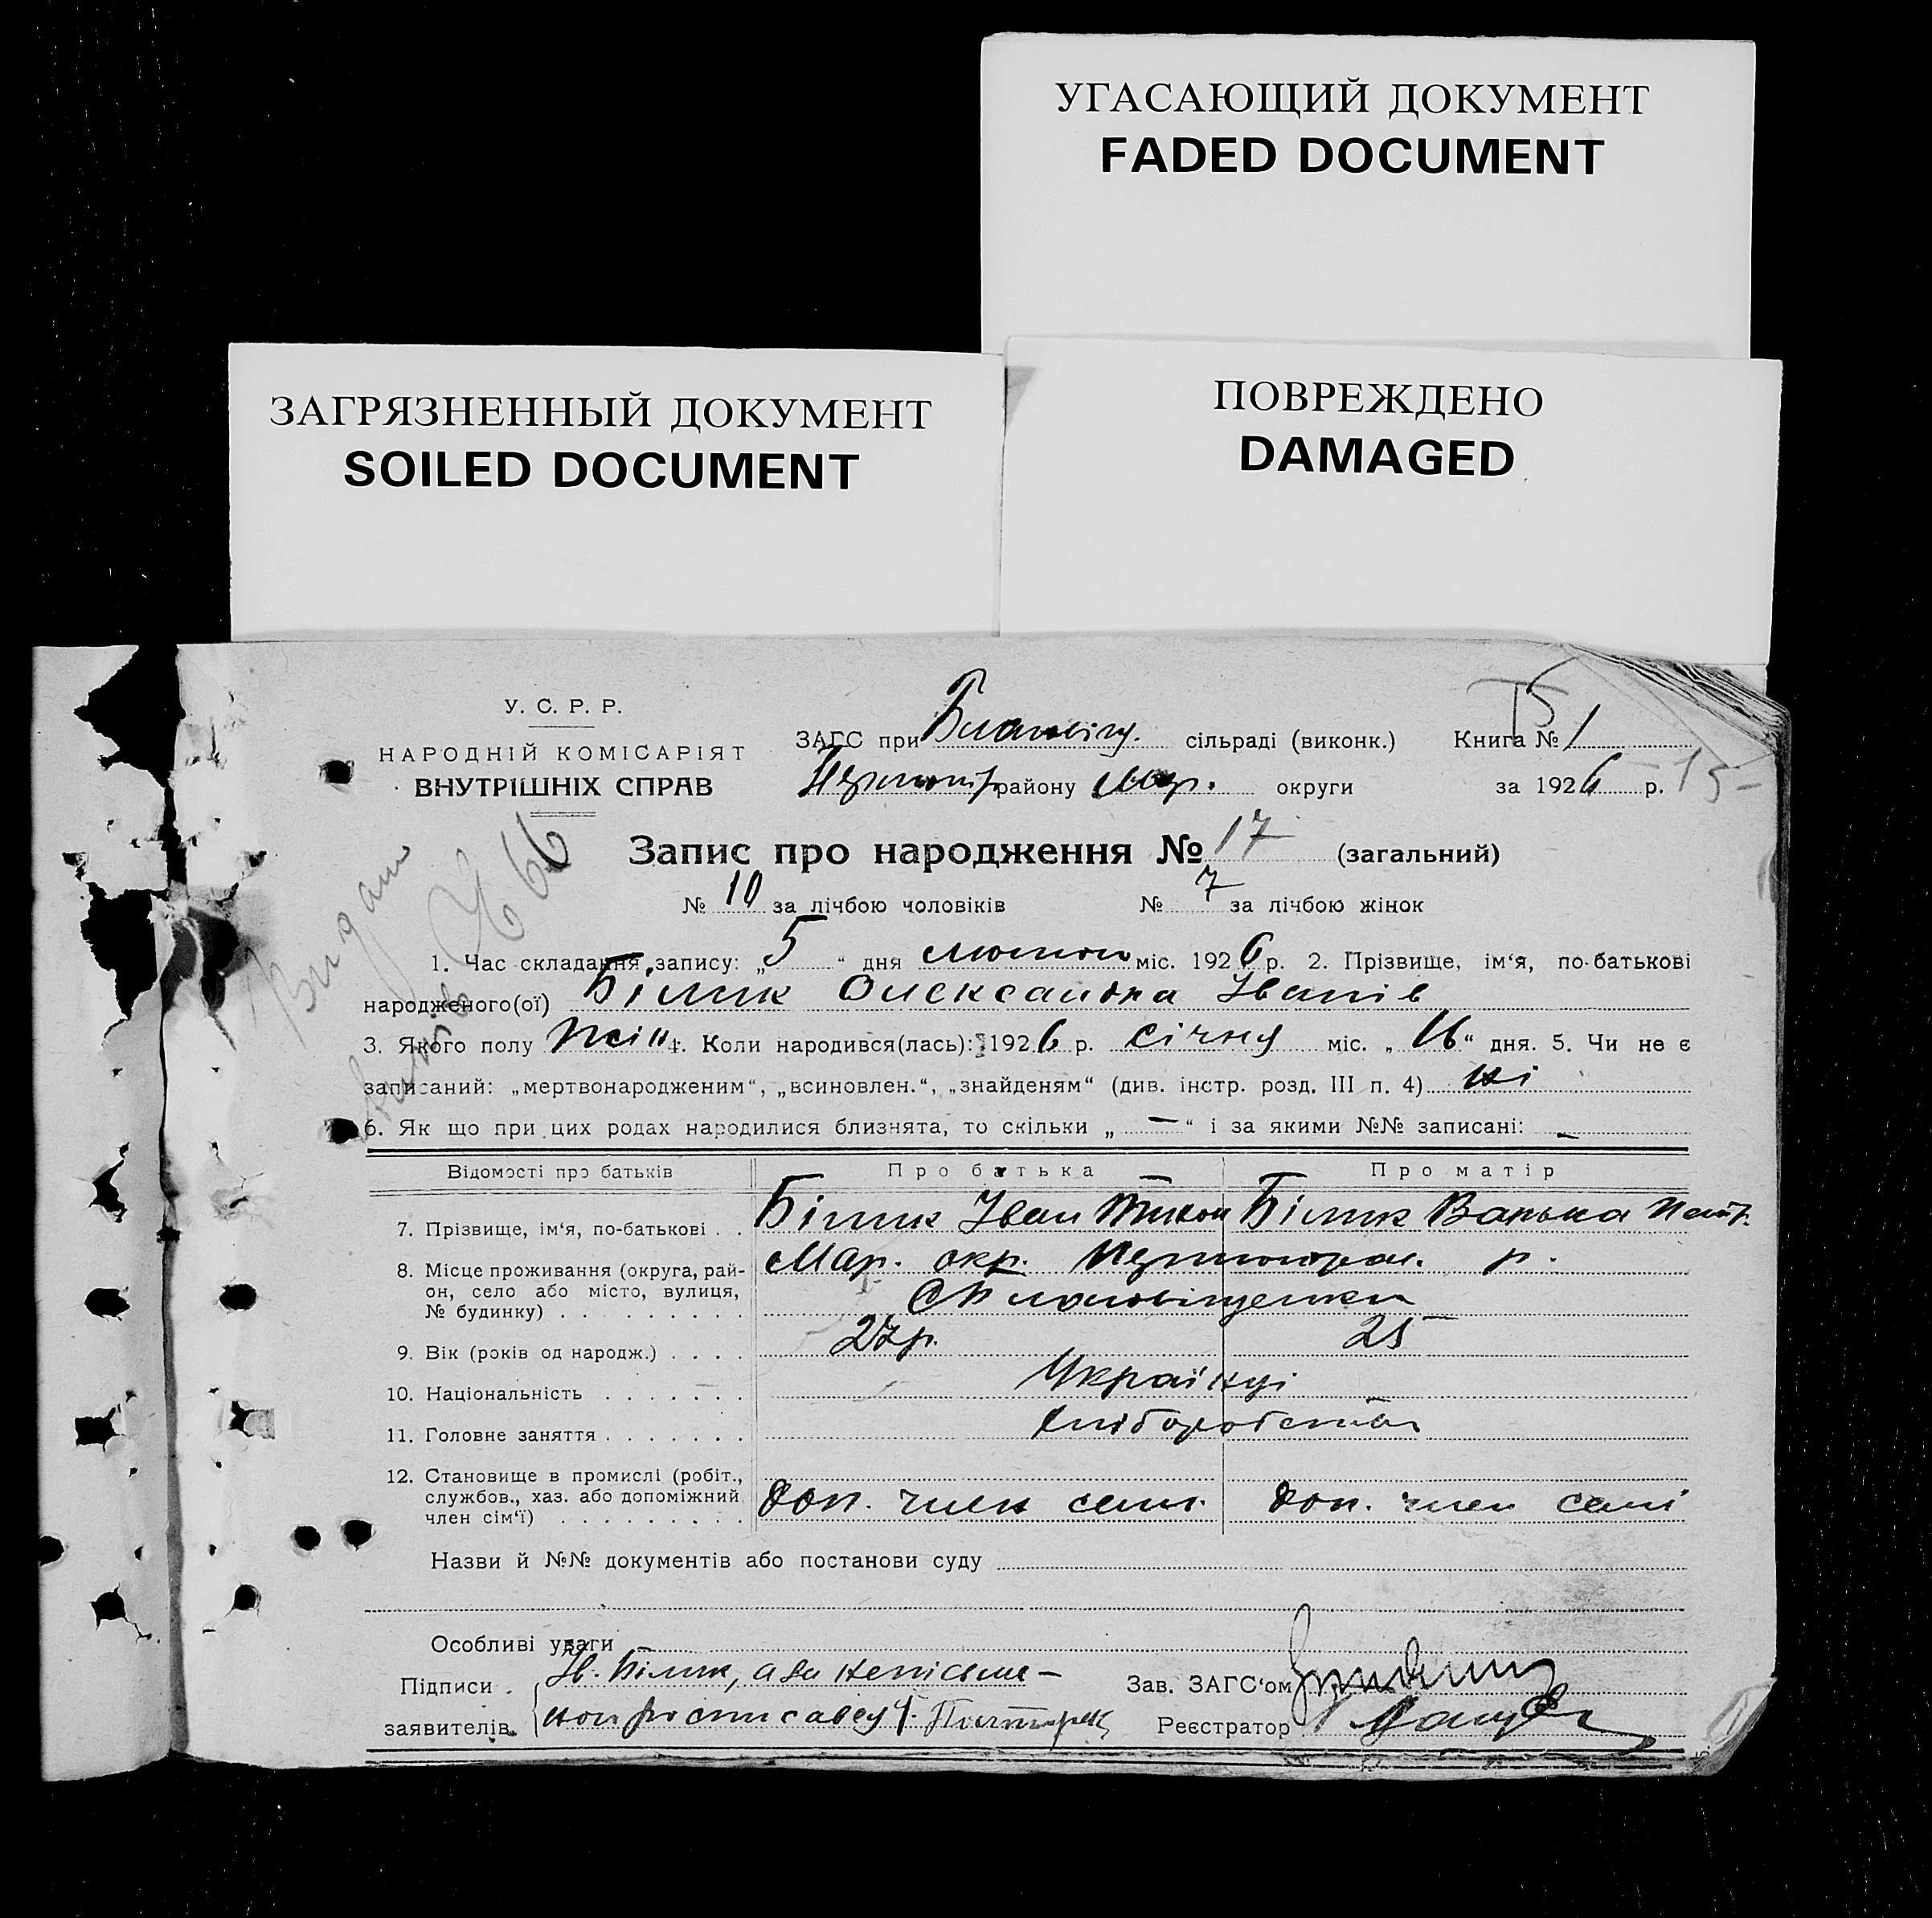 УГАСАЮЩИЙ ДОКУМЕНТ
FADED DOCUMENT
ЗАГРЯЗНЕННЫЙ ДОКУМЕНТ
SOILED DOCUMENT
ПОВРЕЖДЕНО
DAMAGED
У. С. Р. Р.
НАРОДНІЙ КОМІСАРІЯТ
ВНУТРІШНІХ СПРАВ
ЗАГС при сільраді (виконк.) Книга № 1
району Мар. округи за 1926 р. 15-
Запис про народження № 17 (загальний)
№ 10 за лічбою чоловіків № 7 за лічбою жінок
1. Час складання запису: „5“ дня лютого міс. 1926 р. 2. Прізвище, ім‘я, по-батькові
народженого(ої) Білик Олександра Іванів
3. Якого полу жін 4. Коли народився(лась): 1926 р. січня міс. „16“ дня. 5. Чи не є
записаний: „мертвонародженим“, „всиновлен.“, „знайденям“ (див. інстр. розд. III п. 4) ні
6. Як що при цих родах народилися близнята, то скільки „—“ і за якими №№ записані: —
Відомості про батьків Про батька Про матір
7. Прізвище, ім‘я, по-батькові . . Білик Іван Тихон Білик Варька Петр.
8. Місце проживання (округа, рай-
он, село або місто, вулиця,
№ будинку) . . . . . . . . . Мар. окр. р.
9. Вік (років од народж.) . . . . 27 р. 25
10. Національність . . . . . . . Українці
11. Головне заняття . . . . . . . хліборобство
12. Становище в промислі (робіт.,
службов., хаз. або допоміжний
член сім‘ї) . . . . . . . . . доп. член семі. доп. член семі
Назви й №№ документів або постанови суду
Особливі уваги
Підписи Ів. Білик, а за непісьме-
заявителів. ног росписавсу
Зав. ЗАГС‘ом
Реєстратор
Видано